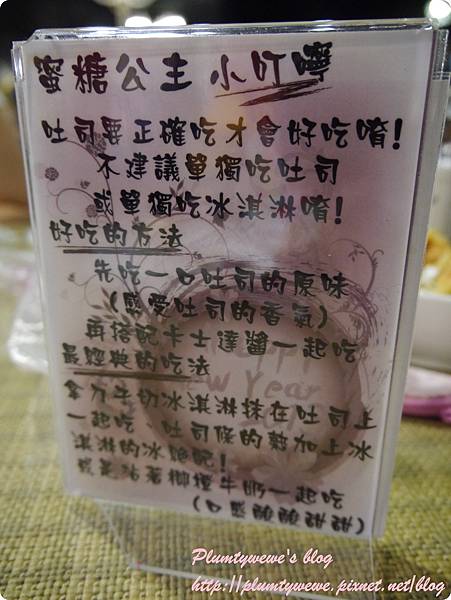 蜜糖公主 小叮嚀
吐司要正確吃才會好吃唷!
不建議單獨吃吐司
或單獨吃冰淇淋唷!
好吃的方法
先吃一口吐司的原味
(感受吐司的香氣)
再搭配卡士達醬一起吃
最經典的吃法
拿刀子切冰淇淋抹在吐司上
一起吃 吐司條的熱加上冰
淇淋的冰絕配!
或是沾著檸檬牛奶一起吃
(口感酸酸甜甜)
Happy
New Year
Plumtywewe's blog
http://plumtywewe.pixnet.net/blog